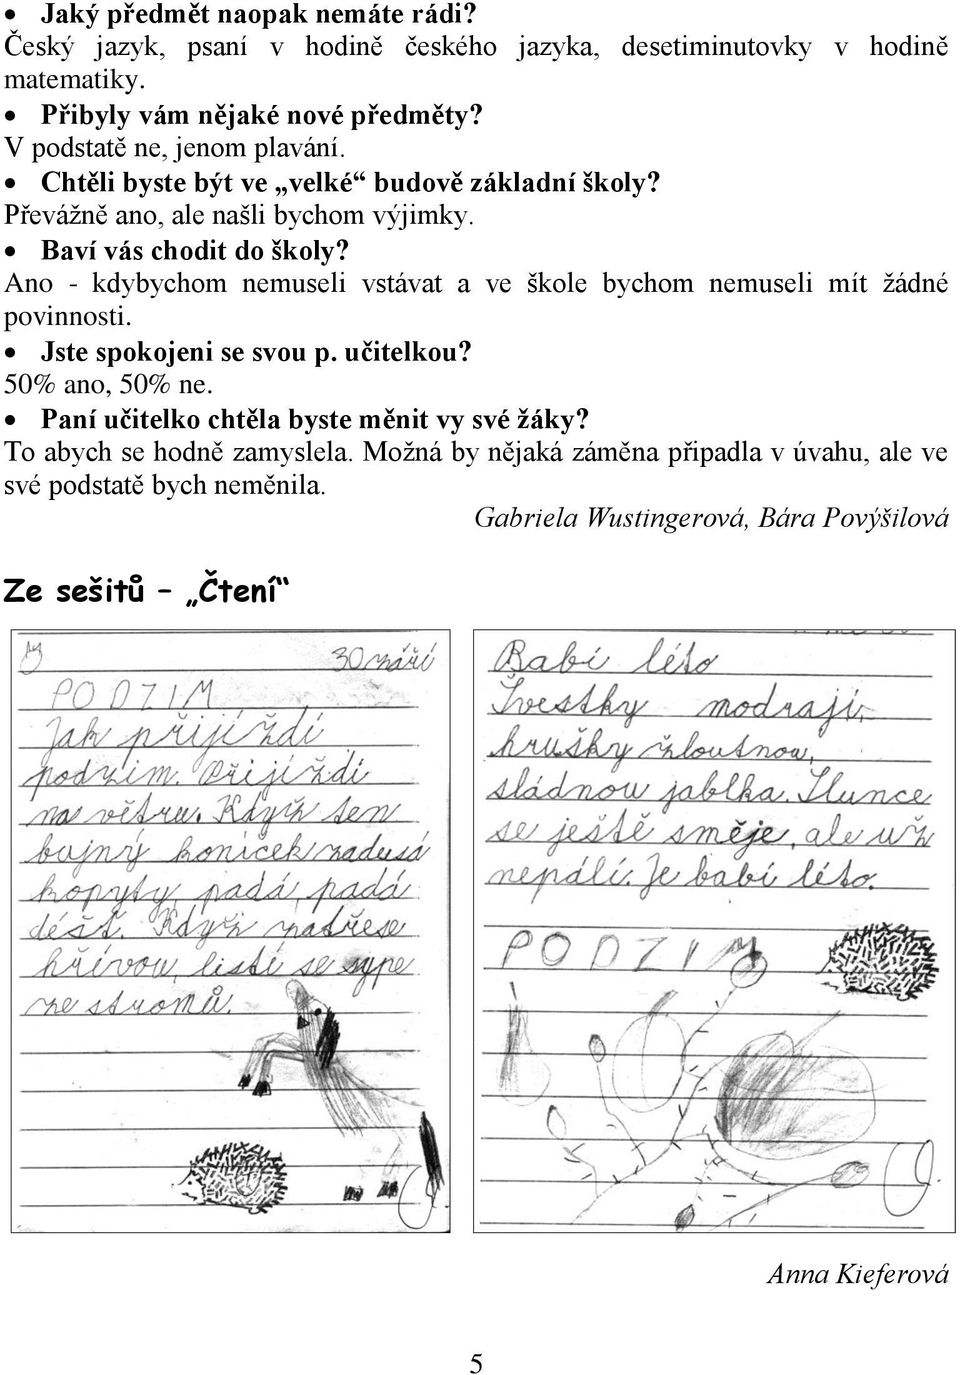 • Jaký předmět naopak nemáte rádi?
Český jazyk, psaní v hodině českého jazyka, desetiminutovky v hodině
matematiky.
• Přibyly vám nějaké nové předměty?
V podstatě ne, jenom plavání.
• Chtěli byste být ve „velké“ budově základní školy?
Převážně ano, ale našli bychom výjimky.
• Baví vás chodit do školy?
Ano - kdybychom nemuseli vstávat a ve škole bychom nemuseli mít žádné
povinnosti.
• Jste spokojeni se svou p. učitelkou?
50% ano, 50% ne.
• Paní učitelko chtěla byste měnit vy své žáky?
To abych se hodně zamyslela. Možná by nějaká záměna připadla v úvahu, ale ve
své podstatě bych neměnila.
Gabriela Wustingerová, Bára Povýšilová
Ze sešitů – „Čtení“
30 září
PODZIM
Jak přijíždí
podzim. Přijíždí
na větru. Když ten
bujný koníček zadusá
kopyty, padá, padá
déšť. Když zatřese
hřívou, listí se sype
ze stromů.
Babí léto
Švestky modrají,
hrušky žloutnou,
sládnou jablka. Slunce
se ještě směje, ale už
nepálí. Je babí léto.
PODZIM
Anna Kieferová
5